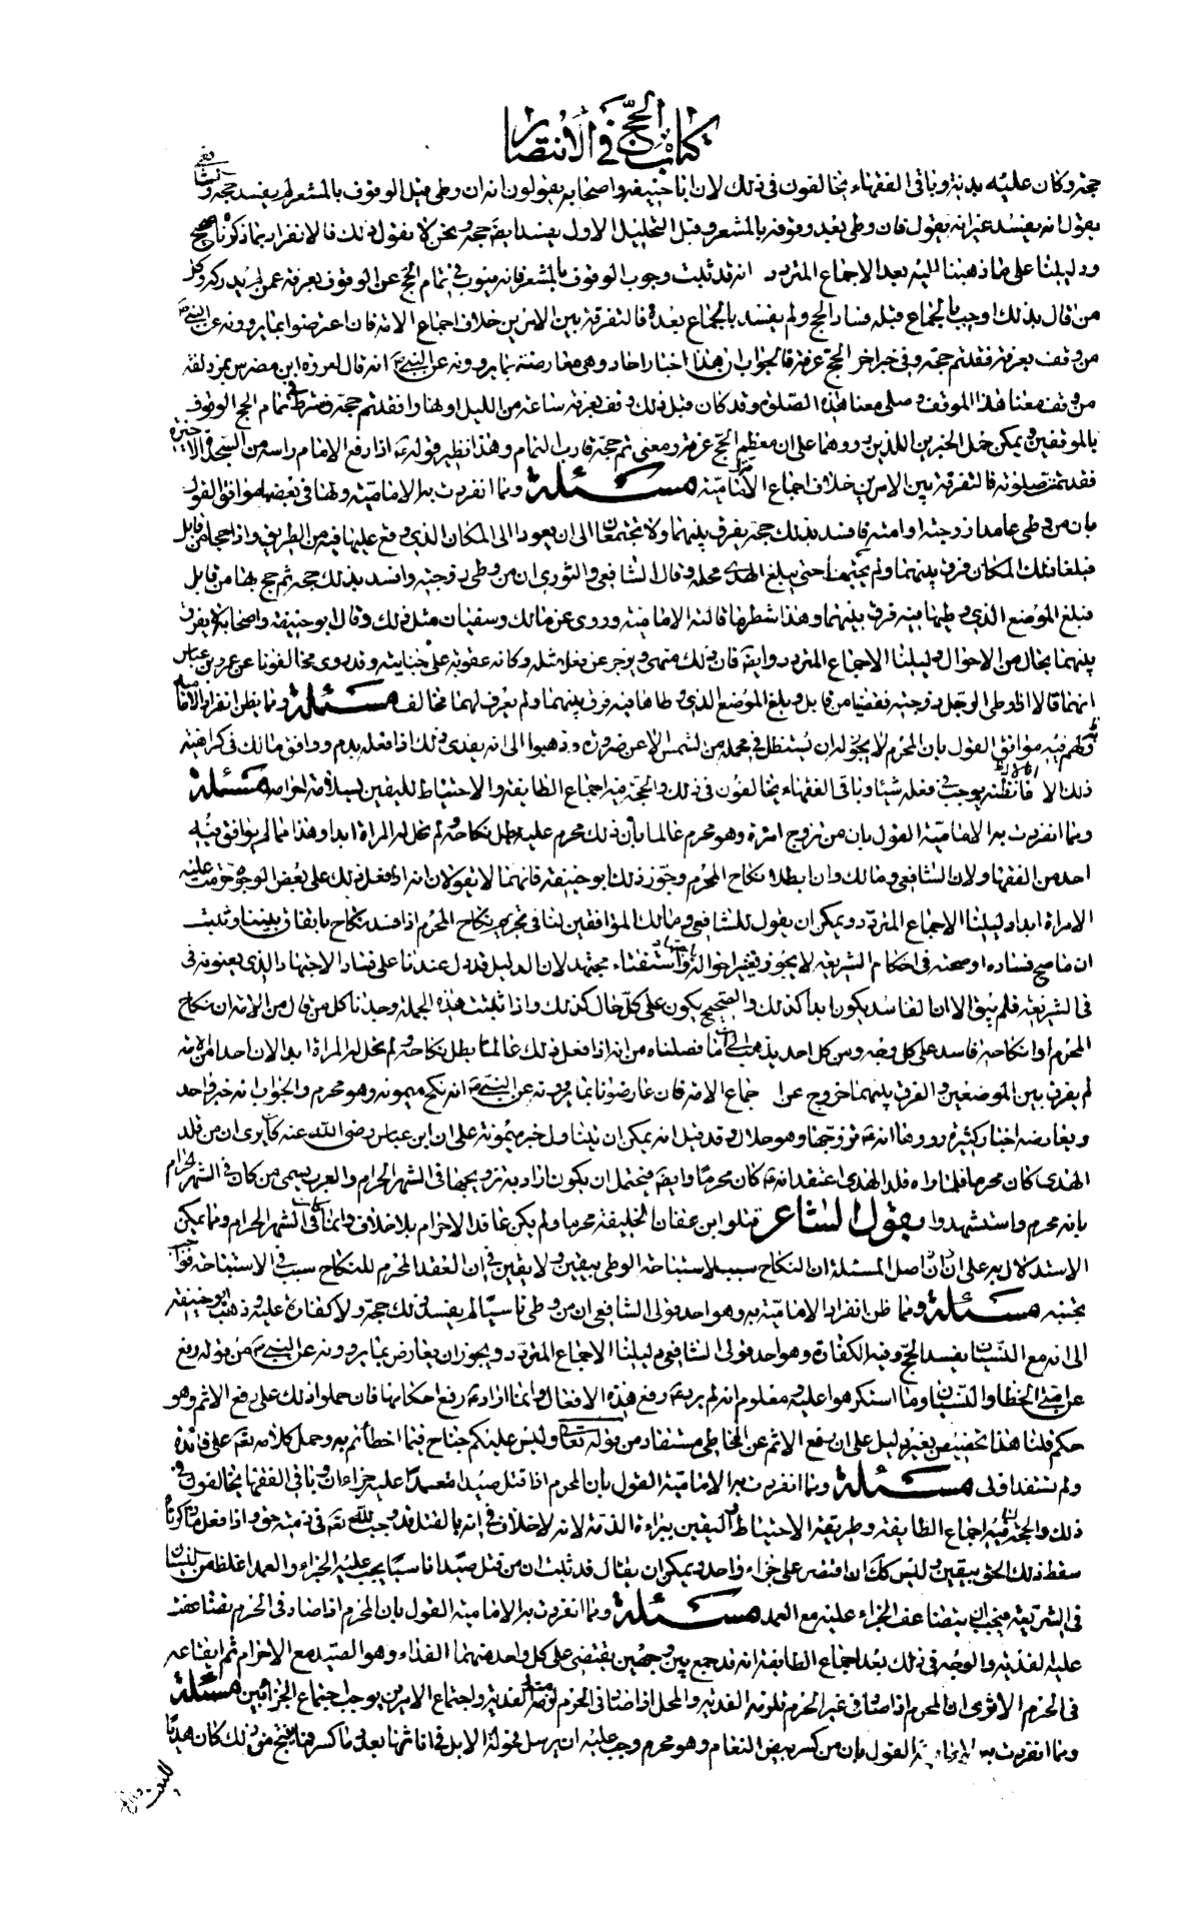 كتاب الحج في الانتصار
حجه وكان عليه بدنة وباقي الفقهاء يخالفون في ذلك لان ابا حنيفة واصحابه يقولون انه ان وطى قبل الوقوف بالمشعر لم يفسد حجه والشافعي
يقول انه يفسد غير انه يقول فان وطى بعد وقوفه بالمشعر وقبل التحليل الاول يفسد ايضا حجه ونحن لا نقول ذلك فالانفراد بما ذكرناه صحيح
ودليلنا على ما ذهبنا اليه بعد الاجماع المتردد انه قد ثبت وجوب الوقوف بالمشعر فانه ينوب في تمام الحج عن الوقوف بعرفة عمن لم يدركه وكل
من قال بذلك اوجب بالجماع قبله فساد الحج ولم يفسد بالجماع بعده فالتفرقة بين الامرين خلاف اجماع الامة فان اعترضوا بما يروونه عن النبي ص
من وقف بعرفة فقد تم حجه وفي خبر اخر الحج عرفة فالجواب ان هذا اخبار احاد وهي معارضة بما يروونه عن النبي ص انه قال لعروة ابن مضرس بمزدلفة
من وقف معنا هذا الموقف وصلى معنا هذه الصلوة وقد كان قبل ذلك وقف بعرفة ساعة من الليل او نهار فقد تم حجه فشرط في تمام الحج الوقوف
بالموقفين ويمكن حمل الخبرين اللذين رووهما على ان معظم الحج عرفة ومعنى تم حجه قارب التمام وهذا نظير قوله ع اذا رفع الامام راسه من السجدة الاخيرة
فقد تمت صلوته فالتفرقة بين الامرين خلاف اجماع الامة مسئلة ومما انفردت به الامامية ولها في بعضها موافق القول
بان من وطى عامدا زوجته او امته فافسد بذلك حجه يفرق بينهما ولا يجتمعان الى ان يعودا الى المكان الذي وقع عليها فيه من الطريق واذا حجا من قابل
فبلغا ذلك المكان فرق بينهما ولم يجتمعا حتى يبلغ الهدى محله وقال الشافعي والثوري ان من وطى زوجته وافسد بذلك حجه ثم حج بها من قابل
فبلغ الموضع الذي وطيها فيه فرق بينهما وهذا شطر ما قالته الامامية وروى عن مالك وسفيان مثل ذلك وقال ابو حنيفة واصحابه لا يفرق
بينهما بحال من الاحوال دليلنا الاجماع المتردد وايضا فان ذلك منهى ويزجر عن فعل مثله وكانه عقوبة على جنايته وقد روى مخالفونا عن عمر وبن عباس
انهما قالا اذا وطى الرجل زوجته فقضيا من قابل وبلغ الموضع الذي وطاها فيه فرق بينهما ولم يعرف لهما مخالف مسئلة ومما ظن انفراد الامامية به
ولهم فيه موافق القول بان المحرم لا يجوز له ان يستظل في محمله من الشمس الا عن ضرورة وذهبوا الى انه يفدى ذلك اذا فعله بدم ووافق مالك في كراهية
ذلك الا انا ما نظنه يوجب في فعله شيئا وباقي الفقهاء يخالفون في ذلك والحجة فيه اجماع الطايفة والاحتياط لليقين بسلامة احرامه مسئلة
ومما انفردت به الامامية القول بان من تزوج امرئة وهو محرم عالما بان ذلك محرم عليه بطل نكاحه ولم تحل له المراة ابدا وهذا مما لم يوافق فيه
احد من الفقهاء ولان الشافعي ومالك وان ابطلا نكاح المحرم وجوز ذلك ابو حنيفة فانهما لا يقولان انه اذا فعل ذلك على بعض الوجوه حرمت عليه
الامراة ابدا دليلنا الاجماع المتردد ويمكن ان يقول للشافعي ومالك الموافقين لنا في تحريم نكاح المحرم اذا فسد نكاح باتفاق بيننا وثبت
ان ما صح فساده او صحته في احكام الشريعة لا يجوز تغير احواله باجتهاد واستفتاء مجتهد لان الدليل قد دل عندنا على فساد الاجتهاد الذي يعنونه في
في الشريعة فلم يبق الا ان الفاسد يكون ابدا كذلك والصحيح يكون على كل حال كذلك واذا ثبتت هذه الجملة وجدنا كل من قال من الامة ان نكاح
المحرم او انكاحه فاسد على كل وجه ومن كل احد يذهب الى ما فصلناه من انه اذا فعل ذلك عالما بطل نكاحه ولم تحل له المراة ابدا لان احدا من الامة
لم يفرق بين الموضعين والفرق بينهما خروج عن اجماع الامة فان عارضونا بما يروونه عن النبي ص انه نكح ميمونه وهو محرم والجواب انه خبر واحد
ويعارضه اخبار كثيرة رووها انه ع تزوجها وهو حلال وقد قيل انه يمكن ان يتناول خبر ميمونة على ان ابن عباس رضى الله عنه كان يرى ان من قلد
الهدى كان محرما فلما راه قلد الهدى اعتقد انه ع كان محرما وايضا فيحتمل ان يكون اراد به تزويجها في الشهر الحرام والعرب يسمى من كان في الشهر الحرام
بانه محرم واستشهدوا بقول الشاعر قتلوا ابن عفان الخليفة محرما ولم يكن عاقد الاحرام بلا خلاف وانما كان في الشهر الحرام ومما يمكن
الاستدلال به على ان اصل المسئلة ان النكاح سبب لاستباحة الوطى بيقين ولا يقين في ان العقد المحرم للنكاح سبب في الاستباحة فواجب
تجنبه مسئلة ومما ظن انفراد الامامية به وهو احد قولى الشافعي ان من وطى ناسيا لم يفسد ذلك حجه ولا كفارة عليه وذهب ابو حنيفة
الى انه مع النسيان يفسد الحج وفيه الكفارة وهو احد قولى الشافعي دليلنا الاجماع المتردد ويجوز ان يعارض بما يروونه عن النبي ص من قوله رفع
عن امتى الخطا والنسيان وما استكرهوا عليه ومعلوم انه لم يرد به رفع هذه الافعال وانما اراد به رفع احكامها فان حملوا ذلك على رفع الاثم وهو
حكم قلنا هذا تخصيص بغير دليل على ان رفع الاثم عن الخاطى مستفاد من قوله تعالى وليس عليكم جناح فيما اخطأتم به وحمل كلامه ع على فائدة
ولم تستفد اولى مسئلة ومما انفردت به الامامية القول بان المحرم اذا قتل صيدا متعمدا عليه جزاءان وباقي الفقهاء يخالفون في
ذلك والحجة لنا فيه اجماع الطايفة وطريقة الاحتياط واليقين ببراءة الذمة لانه لا خلاف في انه بالقتل قد وجب لله تعالى في ذمته حق واذا فعل ما ذكرناه
سقط ذلك الحق بيقين وليس كذلك ان اقتصر على جزاء واحد ويمكن ان يقال قد ثبت ان من قتل صيدا ناسيا يجب عليه الجزاء والعمد اغلظ من النسيان
في الشريعة فيجب ان يتضاعف الجزاء عليه مع العمد مسئلة ومما انفردت به الامامية القول بان المحرم اذا صاد في الحرم تضاعفت
عليه الفدية والوجه في ذلك بعد اجماع الطايفة انه قد جمع بين وجهين يقتضى على كل واحد منهما الفداء وهو الصيد مع الاحرام ثم ايقاعه
في الحرم الا ترى ان المحرم اذا صاد في غير الحرم تلزمه الفدية والمحل اذا صاد في الحرم لزمته الفدية واجتماع الامرين يوجب اجتماع الجزائين مسئلة
ومما انفردت به الامامية القول بان من كسر بيض النعام وهو محرم وجب عليه ان يرسل فحولة الابل في اناثها بعدد ما كسر فما نتج من ذلك كان هديا
للبيت